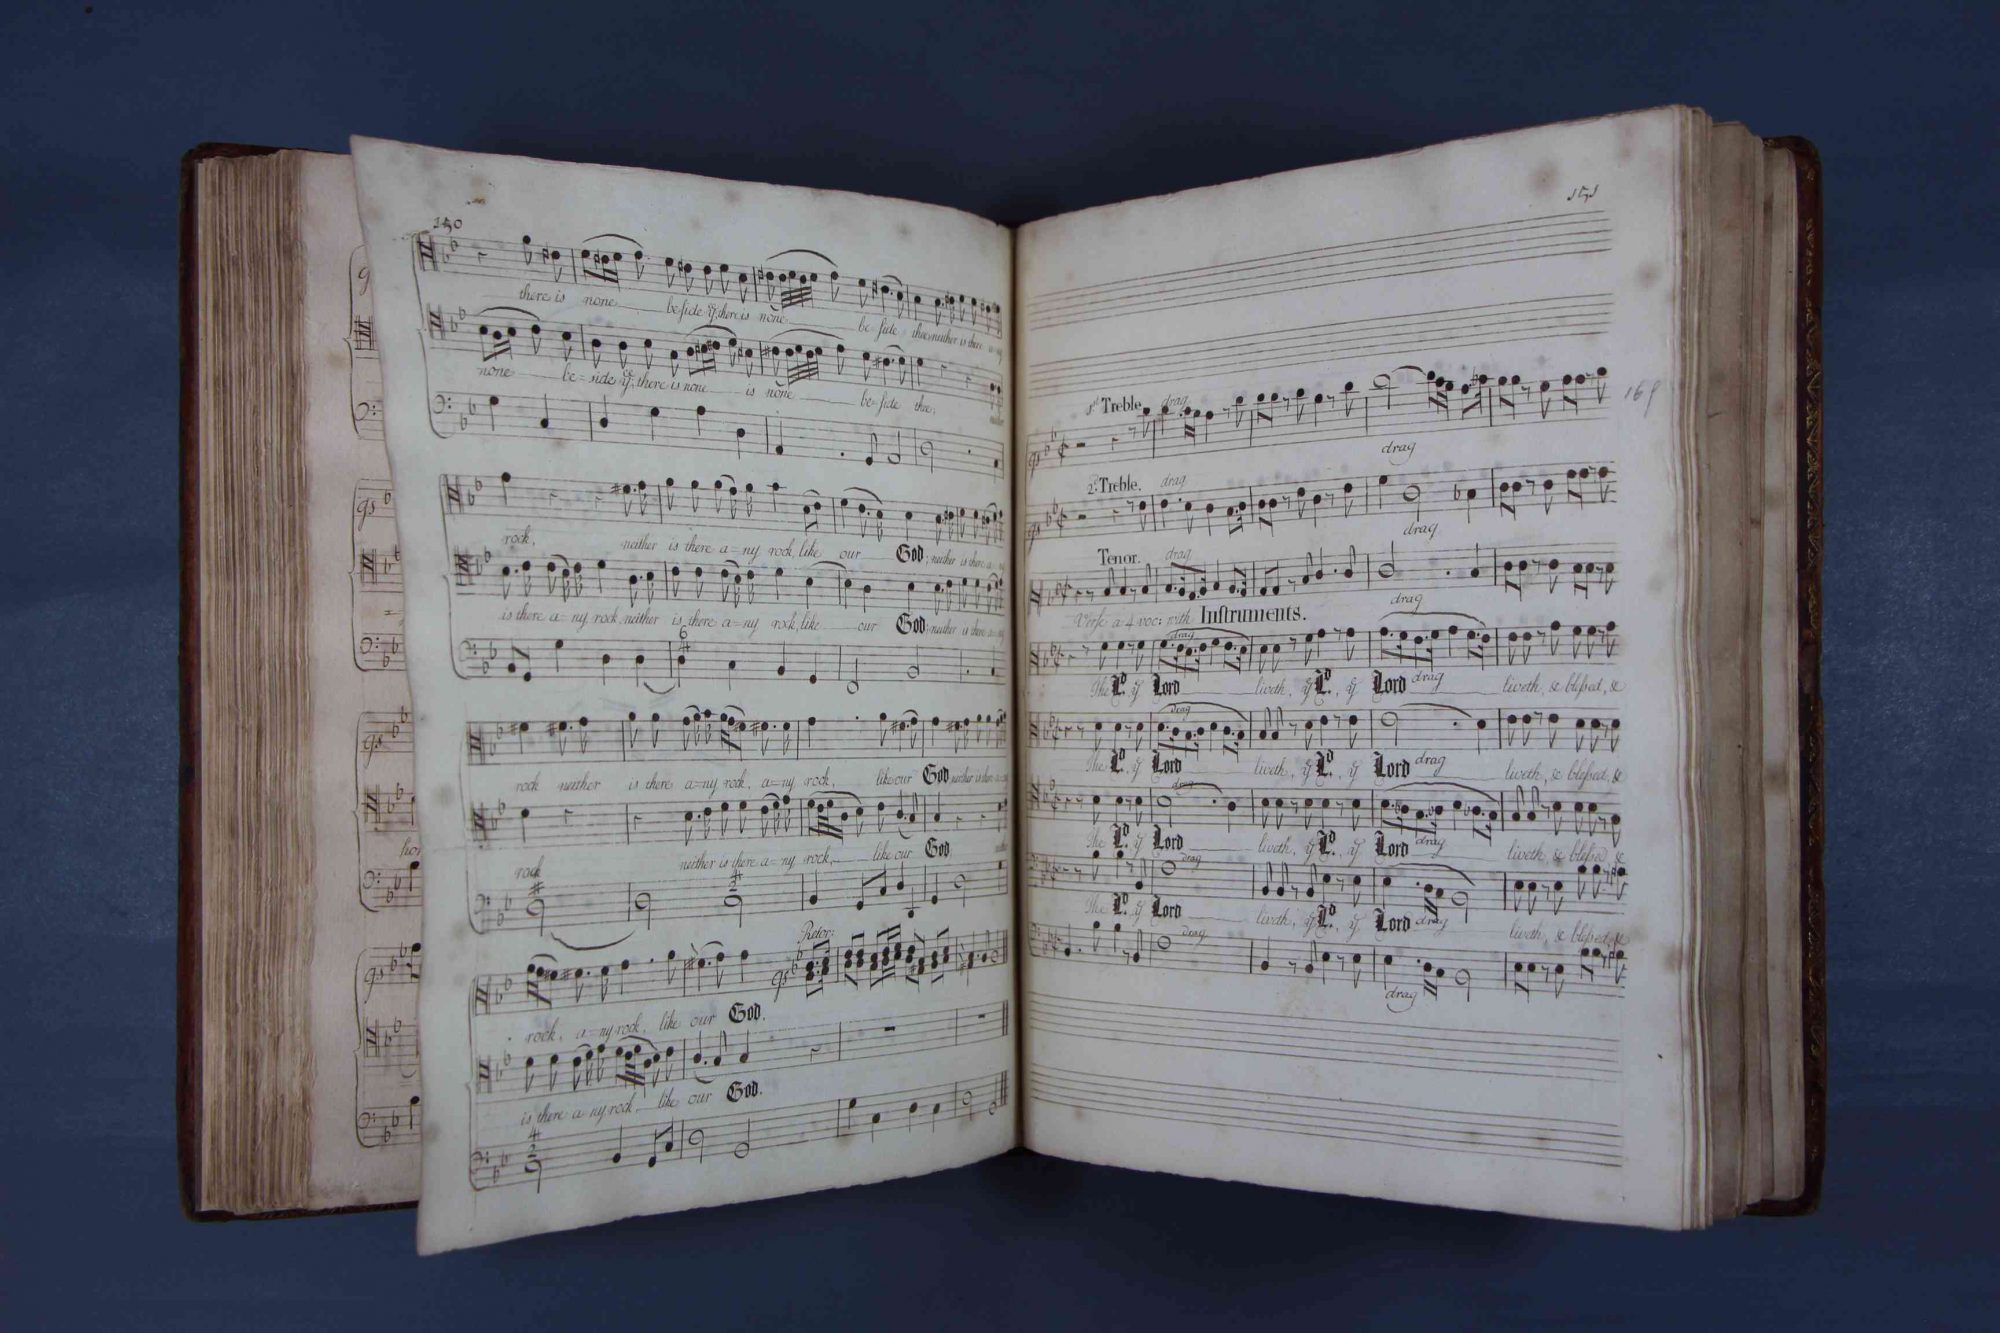 150
there is none be side yͤ, there is none be side thee neither is there a=ny
none be=side yͤ, there is none is none be=side thee, neither
rock, neither is there a=ny rock, like our God, neither is there a=ny
is there a=ny rock, neither is there a=ny rock, like our God, neither is there a=ny
6
rock neither is there a=ny rock, a=ny rock, like our God neither is there a=ny
rock neither is there a=ny rock, like our God neither
Ritor:
rock, a=ny rock, like our God.
is there a ny rock, like our God.
4
2
151
165
1st Treble drag
drag
2d. Treble. drag
drag
Tenor. drag
drag
Verse a 4 voc: with Instruments.
drag
The Ld. yͤ Lord drag liveth, yͤ Ld., yͤ Lord liveth, & blessed, &
drag
The Ld. yͤ Lord drag liveth, yͤ Ld., yͤ Lord liveth, & blessed, &
drag
The Ld. yͤ Lord drag liveth, yͤ Ld., yͤ Lord liveth, & blessed, &
drag
The Ld. yͤ Lord drag liveth, yͤ Ld., yͤ Lord liveth, & blessed, &
drag
drag